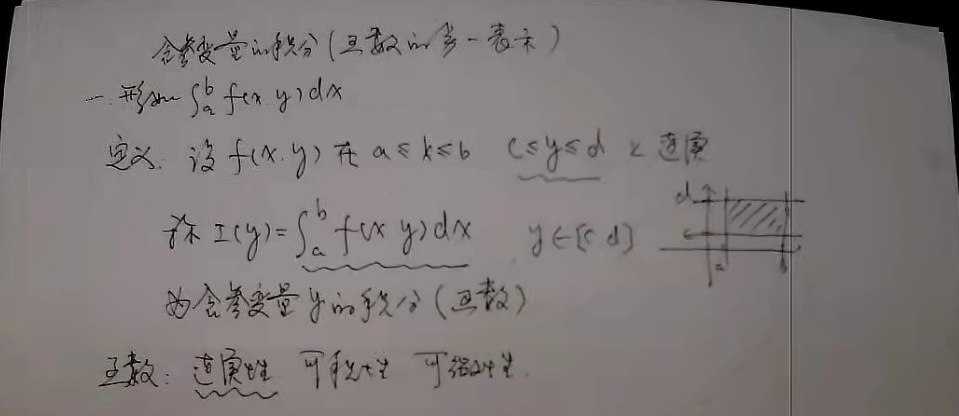 含参变量的积分(函数的另一表示)
一.形如 ∫_a^b f(x y)dx
定义: 设 f(x.y) 在 a≤x≤b c≤y≤d 上 连续
称 I(y)=∫_a^b f(x y)dx y∈[c d]
为含参变量y的积分(函数)
函数: 连续性 可积性 可微性.
d
a b